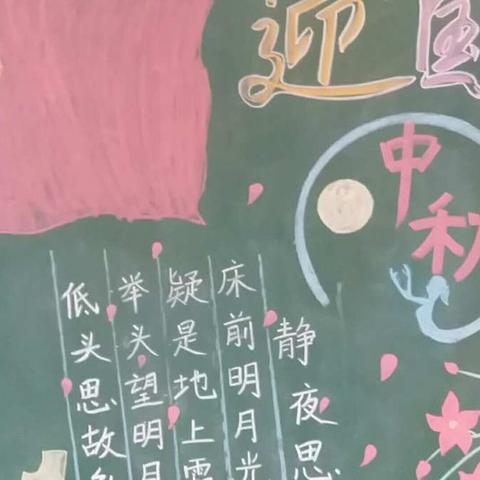 迎国
中秋
静夜思
床前明月光
疑是地上霜
举头望明月
低头思故乡